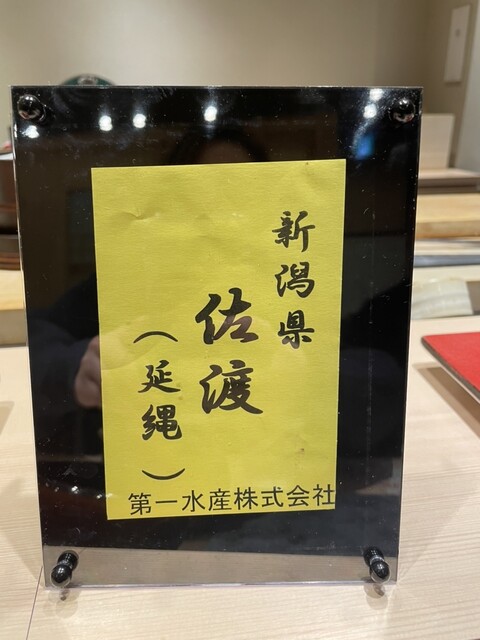 新潟県
佐渡
(延縄)
第一水産株式会社